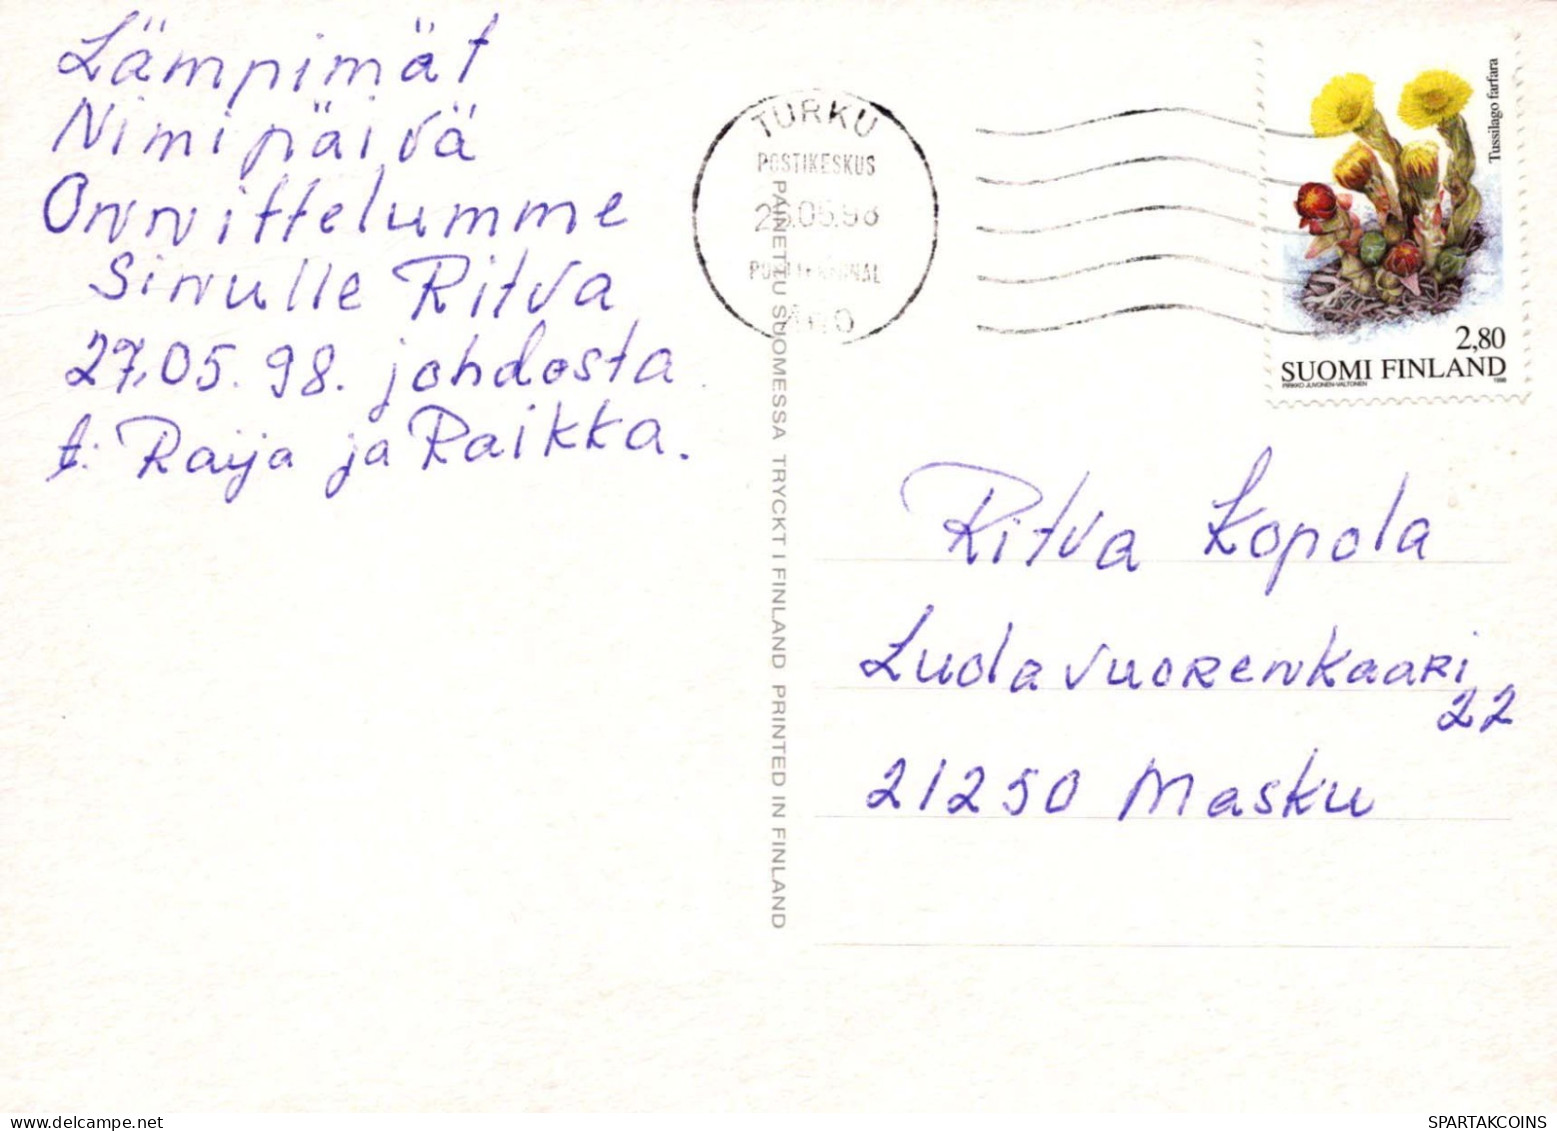 Lämpimät
Nimipäivä
Onnittelumme
Sinulle Ritva
27.05.98. johdosta
t: Raija ja Raikka.
TURKU
POSTIKESKUS
.05.98
PAINETTU SUOMESSA TRYCKT I FINLAND PRINTED IN FINLAND
Tussilago farfara
2,80
SUOMI FINLAND
PIRKKO JUVONEN-VALTONEN 1998
Ritva Kopola
Luolavuorenkaari
22
21250 Masku
SPARTAKCOINS